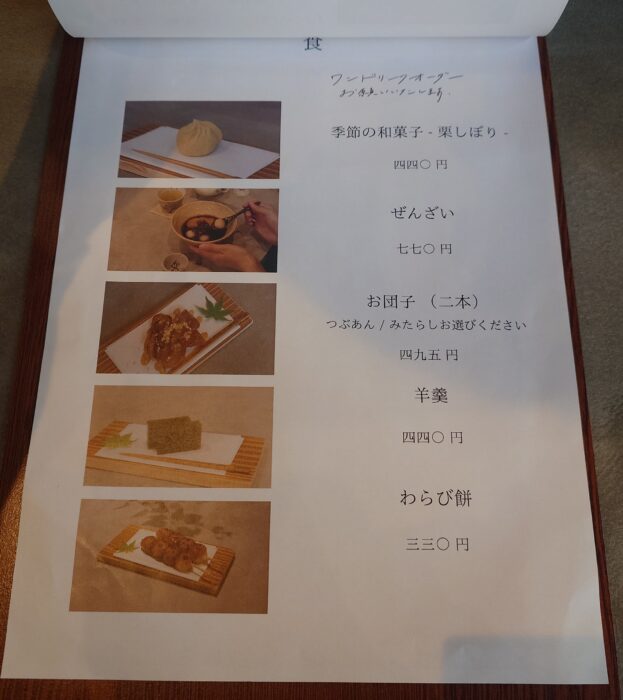 食
ワンドリンクオーダー
お願いいたします.
季節の和菓子 - 栗しぼり -
四四〇 円
ぜんざい
七七〇 円
お団子 （二本）
つぶあん / みたらしお選びください
四九五 円
羊羹
四四〇 円
わらび餅
三三〇 円